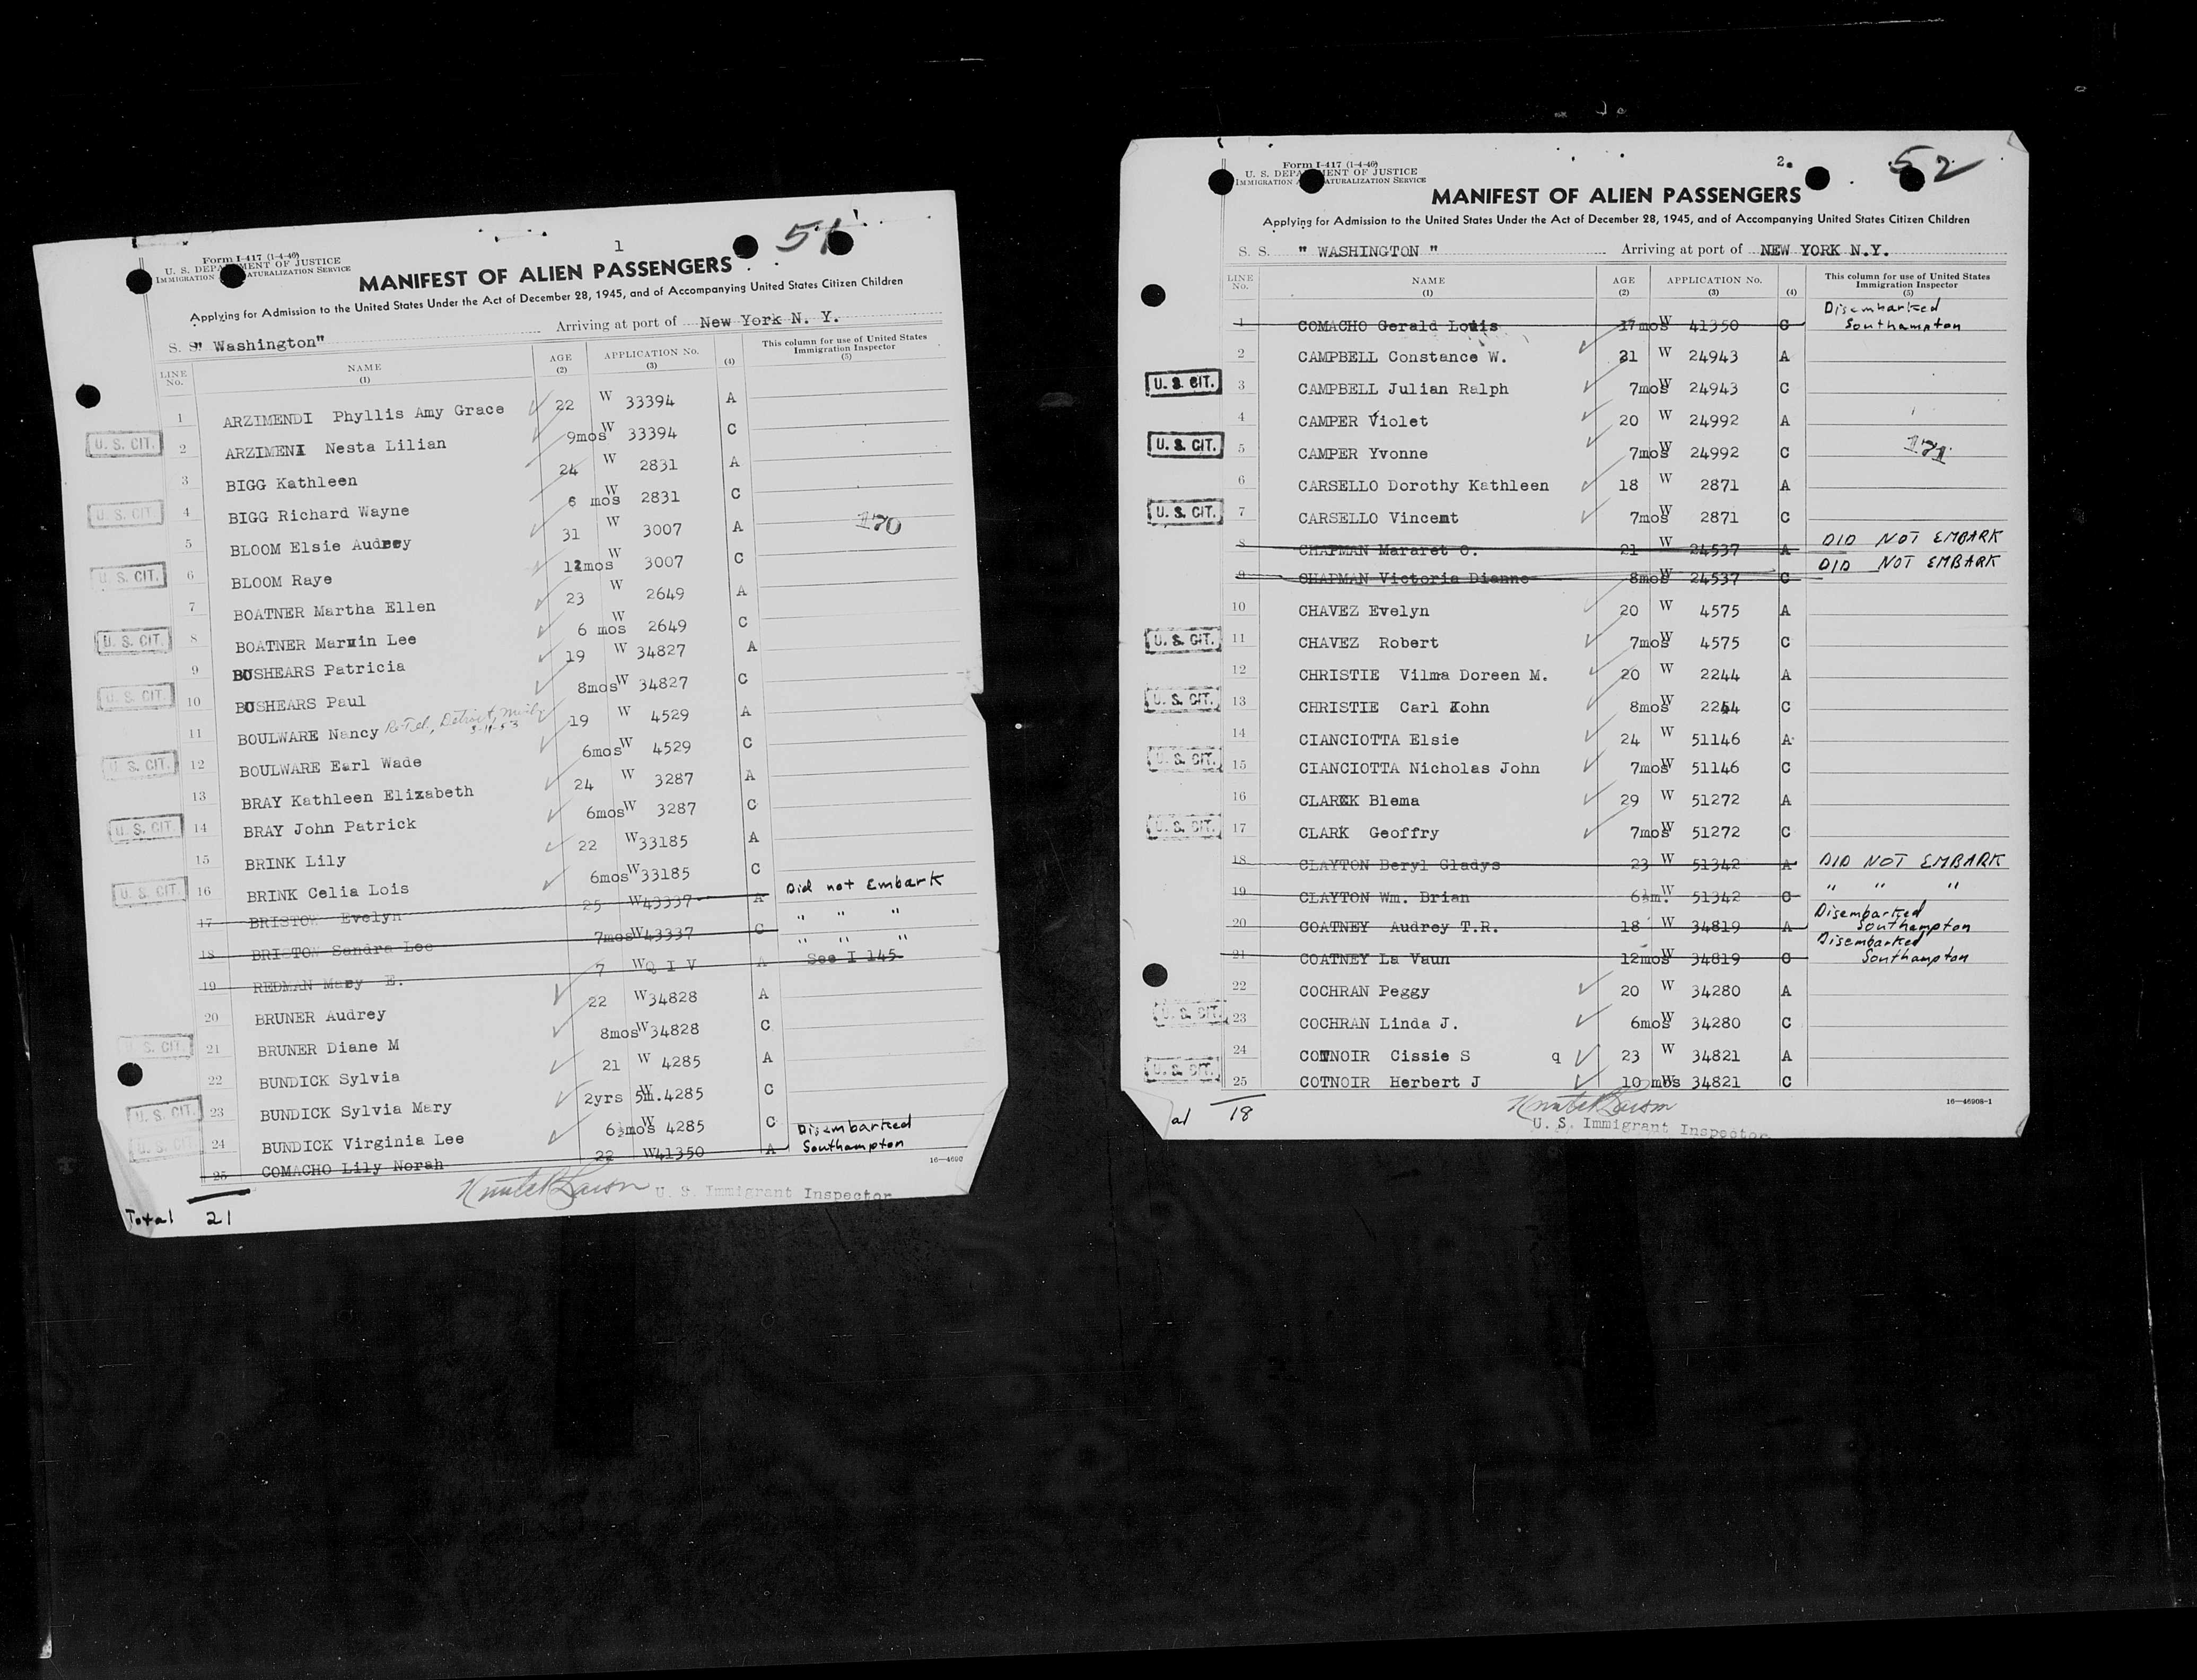 1
51
Form I-417 (1-4-46)
U. S. DEPA MENT OF JUSTICE
IMMIGRATION ATURALIZATION SERVICE
MANIFEST OF ALIEN PASSENGERS
Applying for Admission to the United States Under the Act of December 28, 1945, and of Accompanying United States Citizen Children
S. S. " Washington" Arriving at port of New York N. Y.
LINE No. NAME (1) AGE (2) APPLICATION No. (3) (4) This column for use of United States Immigration Inspector (5)
1 ARZIMENDI Phyllis Amy Grace 22 W 33394 A
U. S. CIT. 2 ARZIMENI Nesta Lilian 9mos W 33394 C
3 BIGG Kathleen 24 W 2831 A
U. S. CIT. 4 BIGG Richard Wayne 6 mos W 2831 C
5 BLOOM Elsie Audrey 31 W 3007 A 170
U. S. CIT. 6 BLOOM Raye 11mos W 3007 C
7 BOATNER Martha Ellen 23 W 2649 A
U. S. CIT. 8 BOATNER Marwin Lee 6 mos W 2649 C
9 BUSHEARS Patricia 19 W 34827 A
U. S. CIT. 10 BUSHEARS Paul 8mos W 34827 C
11 BOULWARE Nancy Detroit, Mich 19 W 4529 A
U. S. CIT. 12 BOULWARE Earl Wade 6mos W 4529 C
13 BRAY Kathleen Elizabeth 24 W 3287 A
U. S. CIT. 14 BRAY John Patrick 6mos W 3287 C
15 BRINK Lily 22 W 33185 A
U. S. CIT. 16 BRINK Celia Lois 6mos W 33185 C
17 BRISTOW Evelyn 25 W 43337 A Did not Embark
18 BRISTOW Sandra Lee 7mos W 43337 C " " "
19 REDMAN Mary E. 7 W Q I V A " " " See I 145
20 BRUNER Audrey 22 W 34828 A
U. S. CIT. 21 BRUNER Diane M 8mos W 34828 C
22 BUNDICK Sylvia 21 W 4285 A
U. S. CIT. 23 BUNDICK Sylvia Mary 2yrs 5m. W 4285 C
U. S. CIT. 24 BUNDICK Virginia Lee 6½mos W 4285 C
25 COMACHO Lily Norah 22 W 41350 A Disembarked Southampton
16-4690
U. S. Immigrant Inspector
Total 21
2.
52
Form I-417 (1-4-46)
U. S. DEPA MENT OF JUSTICE
IMMIGRATION A ATURALIZATION SERVICE
MANIFEST OF ALIEN PASSENGERS
Applying for Admission to the United States Under the Act of December 28, 1945, and of Accompanying United States Citizen Children
S. S. " WASHINGTON " Arriving at port of NEW YORK N.Y.
LINE No. NAME (1) AGE (2) APPLICATION No. (3) (4) This column for use of United States Immigration Inspector (5)
1 COMACHO Gerald Louis 17mos W 41350 C Disembarked Southampton
2 CAMPBELL Constance W. 21 W 24943 A
U. S. CIT. 3 CAMPBELL Julian Ralph 7mos W 24943 C
4 CAMPER Violet 20 W 24992 A
U. S. CIT. 5 CAMPER Yvonne 7mos W 24992 C 171
6 CARSELLO Dorothy Kathleen 18 W 2871 A
U. S. CIT. 7 CARSELLO Vincemt 7mos W 2871 C
8 CHAPMAN Mararet O. 21 W 24537 A DID NOT EMBARK
9 CHAPMAN Victoria Dianne 8mos W 24537 C DID NOT EMBARK
10 CHAVEZ Evelyn 20 W 4575 A
U. S. CIT. 11 CHAVEZ Robert 7mos W 4575 C
12 CHRISTIE Vilma Doreen M. 20 W 2244 A
U. S. CIT. 13 CHRISTIE Carl John 8mos W 2244 C
14 CIANCIOTTA Elsie 24 W 51146 A
U. S. CIT. 15 CIANCIOTTA Nicholas John 7mos W 51146 C
16 CLARK Blema 29 W 51272 A
U. S. CIT. 17 CLARK Geoffry 7mos W 51272 C
18 CLAYTON Beryl Gladys 23 W 51342 A DID NOT EMBARK
19 CLAYTON Wm. Brian 6½m. W 51342 C " " "
20 COATNEY Audrey T.R. 18 W 34819 A Disembarked Southampton
21 COATNEY La Vaun 12mos W 34819 C Disembarked Southampton
22 COCHRAN Peggy 20 W 34280 A
U. S. CIT. 23 COCHRAN Linda J. 6mos W 34280 C
24 COTNOIR Cissie S q 23 W 34821 A
U. S. CIT. 25 COTNOIR Herbert J 10 mos W 34821 C
16-46908-1
U. S. Immigrant Inspector
al 18